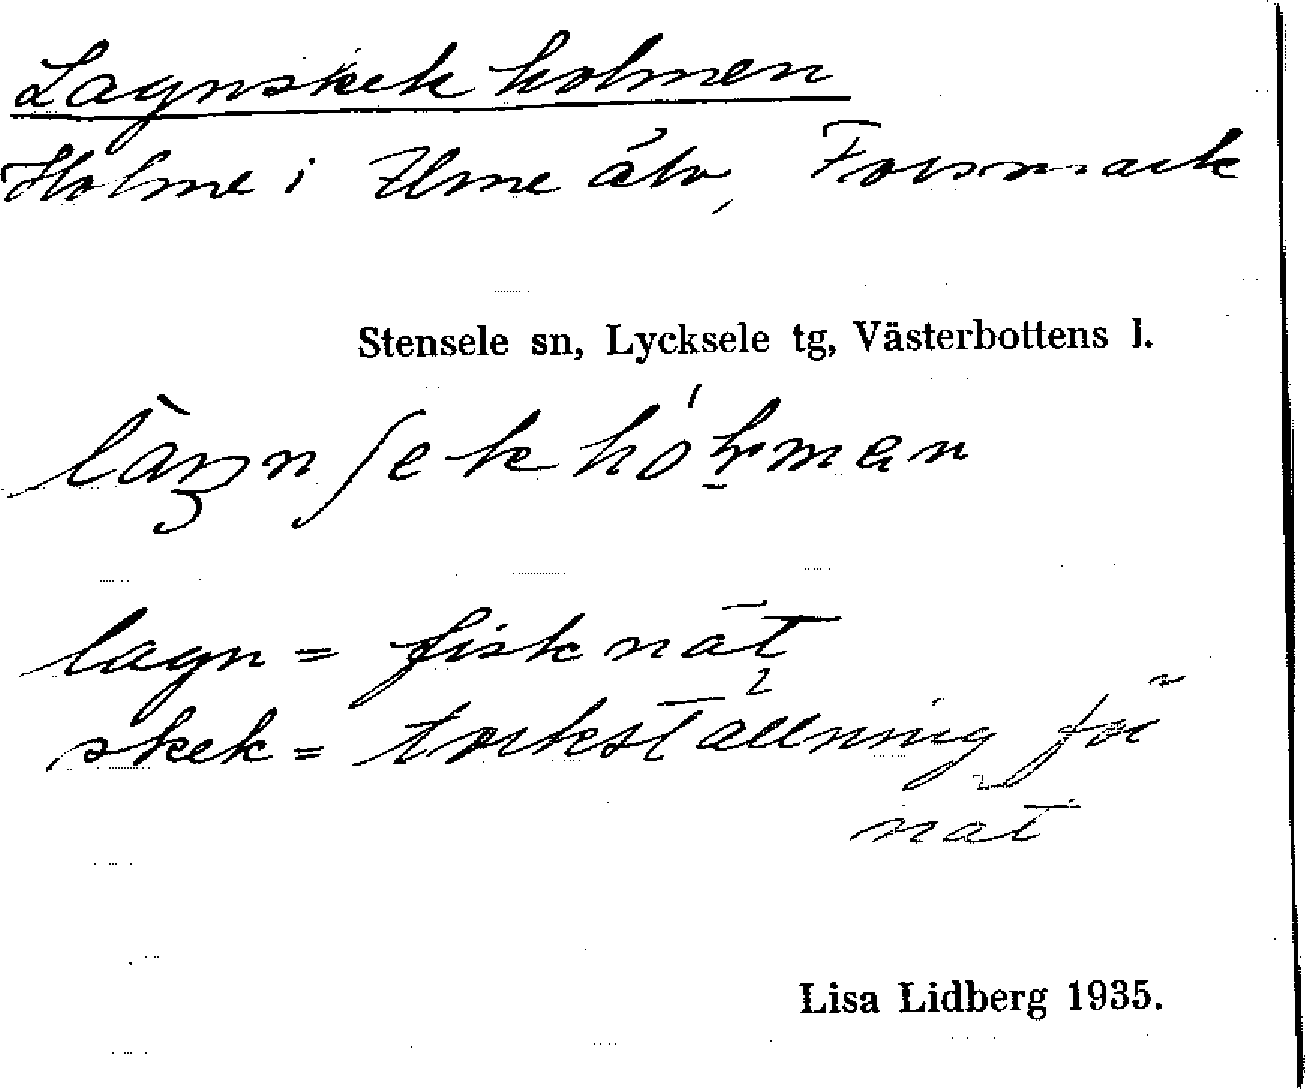 Lagnskekholmen
Holme i Ume älv, Forsmark
Stensele sn, Lycksele tg, Västerbottens l.
lagn = fisknät
skek = torkställning för
nät
Lisa Lidberg 1935.